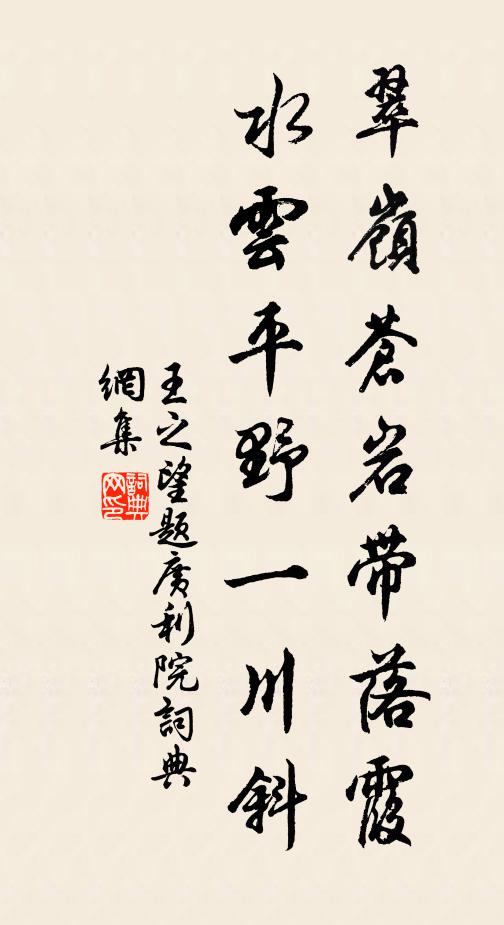 翠嶺蒼岩帶落霞
水雲平野一川斜
王之望題廣利院詞典
網集
詞典
网印